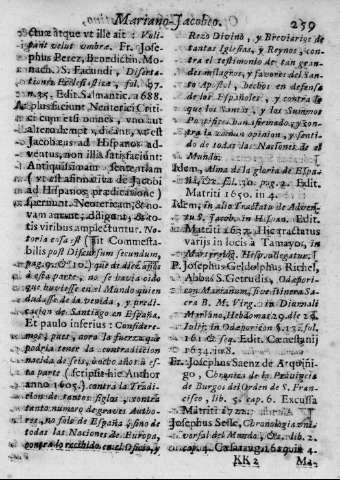 Mariano-Jacobeo. 259
ctuæ atque vt ille ait: Voli-
tant velut umbræ. Fr. Jose-
phus Perez, Benedictin. Mo-
nach. S. Facundi, Disserta-
tionis Ecclesiasticæ, fol. 87.
n. 35. Edit. Salmantic. 1688.
At plusficiunt Neuterici Criti
ci cum etsi omnes, vno aut
altero dempto, dicant, vt est
Jacobæus ad Hispanos ad-
ventus, non illa satisfaciunt:
Antiquissimam sententiam
(vt est affirmativa de Jacobi
ad Hispanos prædicatione)
spernunt. Neutericam, & no-
vam amant, diligunt, & to-
tis viribus amplectuntur. No-
toria cosa es (Ait Commesta-
bilis post Discursum secundum,
pag. 9. & 10.) que de diez años
à esta parte, no se havia oìdo
que huviesse en el Mundo quien
dudasse de la venida, y predi-
cacion de Santiago en España.
Et paulo inferius: Considere-
mos, pues, aora la fuerça que
podria tener la contradicion
nacida de seis, ù ocho años à es-
ta parte (scripsit hic Author
anno 1605.) contra la Tradi-
cion de tantos siglos, y contra
tanto numero de graves Autho-
res, no solo de España, sino de
todas las Naciones de Europa,
contra lo recibido en el Oficio, y
Rezo Divino, y Breviarios de
tantas Iglesias, y Reynos, con-
tra el testimonio de tan gran-
des milagros, y favores del San-
to Apostol, hechos en defensa
de los Españoles, y contra lo
que los Santos, y los Summos
Pontifices han firmado, y con-
tra la comun opinion, y senti-
do de todas las Naciones de el
Mundo.
Idem, Alma de la gloria de Espa-
ña, &c. fol. 30. pag. 2. Edit.
Matrit 1650. in 4.
Idem, in alio Tractatu de Adven-
tu S. Jacob. in Hispan. Edit.
Matriti 1637. Hic tractatus
varijs in locis à Tamayo, in
Martyrolog. Hisp. allegatur.
P. Josephus Geldolphus Richel,
Abbas S. Gertrudis, Odepori-
cum Marianum, sive Itinera Sa-
cra B. M. Virg. in Diurnali
Mariano, Hebdomæ 29. die 24.
Iulij, in Odeporicon §. 132. fol.
161 & seq. Edit. Cænestanij
1634. in 8.
Fr. Joseph Saenz de Arquiñi-
go, Chronica de la Provincia
de Burgos del Orden de S. Fran-
cisco, lib. 5. cap. 6. Excussa
Matriti 1722.
Josephus Sesse, Chronologia uni-
versal del Mundo, &c. lib. 2.
cap. 4. Cæsaraug. 1621. in 4.
KK 2 Ma-